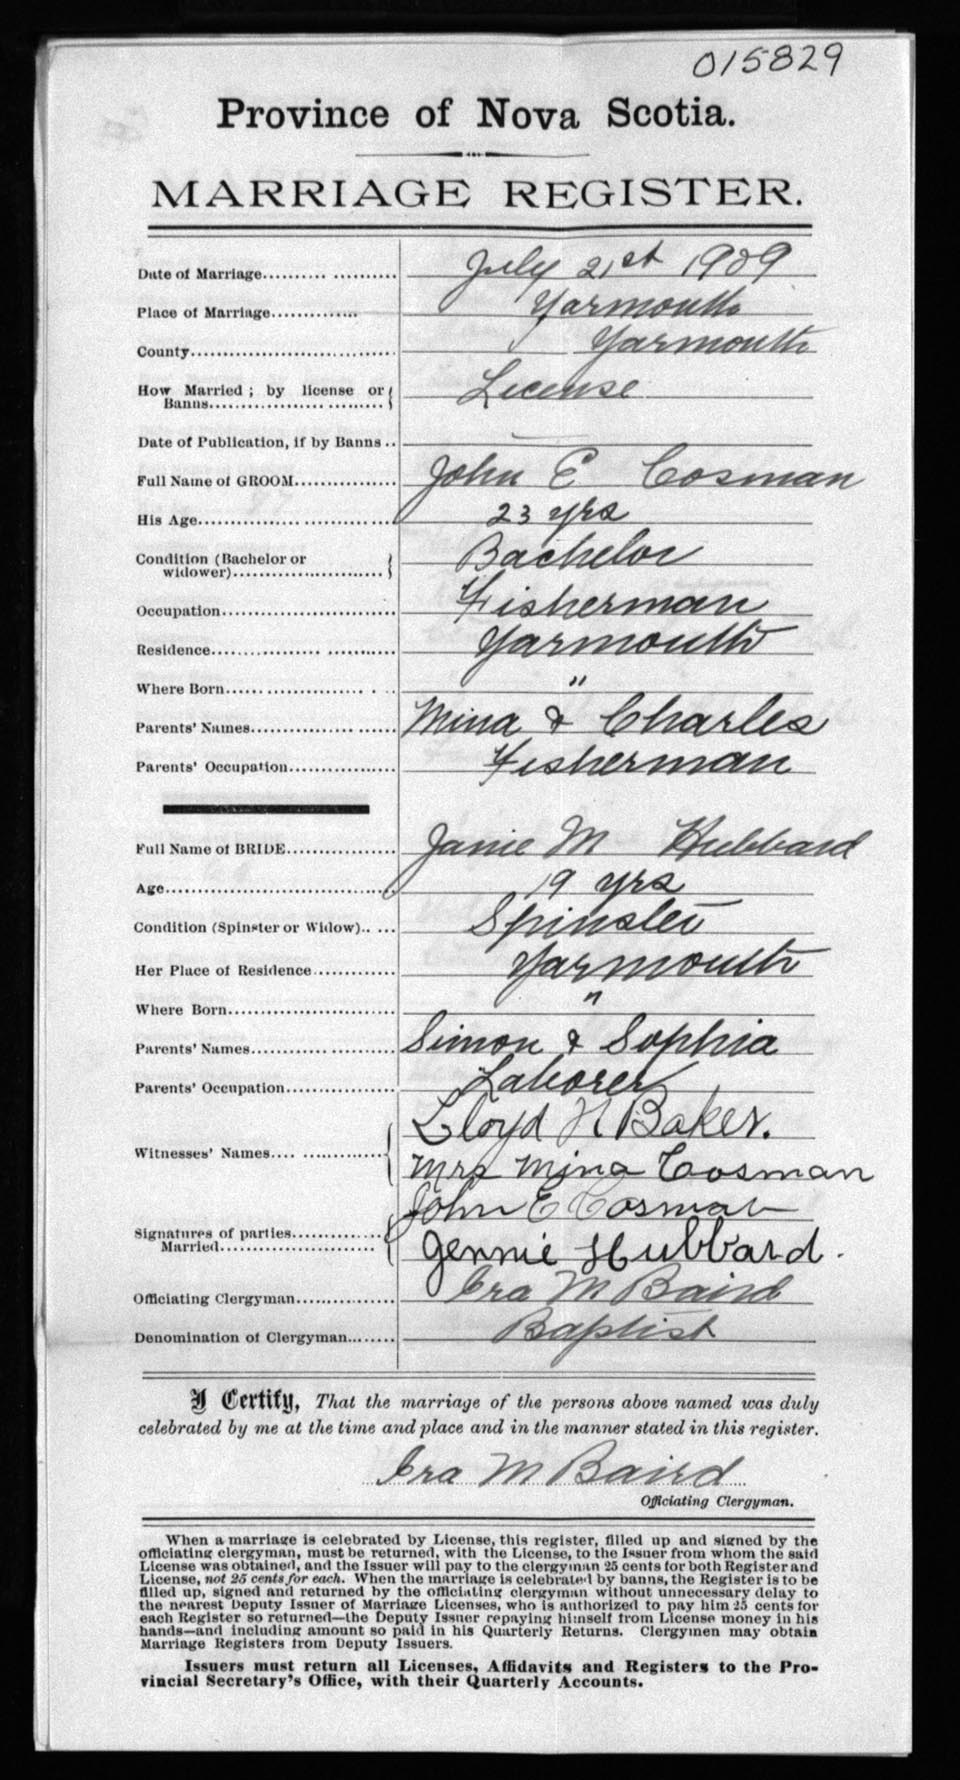 015829
Province of Nova Scotia.
MARRIAGE REGISTER.
Date of Marriage.......... ........... July 21st 1909
Place of Marriage.............. Yarmouth
County................................ Yarmouth
How Married ; by license or License
Banns.................... ..........
Date of Publication, if by Banns ..
Full Name of GROOM................ John E Cosman
His Age................... ............ 23 yrs
Condition (Bachelor or Bachelor
widower)........................
Occupation........................... Fisherman
Residence................. ........... Yarmouth
Where Born...... ............... . . . "
Parents' Names............. ......... Mina & Charles
Parents' Occupation................. Fisherman
Full Name of BRIDE................. Janie M Hubbard
Age.................................... 19 yrs
Condition (Spinster or Widow).. ... Spinster
Her Place of Residence............. Yarmouth
Where Born........................... "
Parents' Names............ .......... Simon & Sophia
Parents' Occupation................. Laborer
Lloyd H Baker.
Witnesses' Names.... .............
Mrs Mina Cosman
John E Cosman
Signatures of parties..............
Married........................ Jennie Hubbard.
Officiating Clergyman................ Ira M Baird
Denomination of Clergyman........ Baptist
I Certify, That the marriage of the persons above named was duly
celebrated by me at the time and place and in the manner stated in this register.
Ira M Baird
Officiating Clergyman.
When a marriage is celebrated by License, this register, filled up and signed by the
officiating clergyman, must be returned, with the License, to the Issuer from whom the said
License was obtained, and the Issuer will pay to the clergyman 25 cents for both Register and
License, not 25 cents for each. When the marriage is celebrated by banns, the Register is to be
filled up, signed and returned by the officiating clergyman without unnecessary delay to
the nearest Deputy Issuer of Marriage Licenses, who is authorized to pay him 25 cents for
each Register so returned—the Deputy Issuer repaying himself from License money in his
hands—and including amount so paid in his Quarterly Returns. Clergymen may obtain
Marriage Registers from Deputy Issuers.
Issuers must return all Licenses, Affidavits and Registers to the Pro-
vincial Secretary's Office, with their Quarterly Accounts.